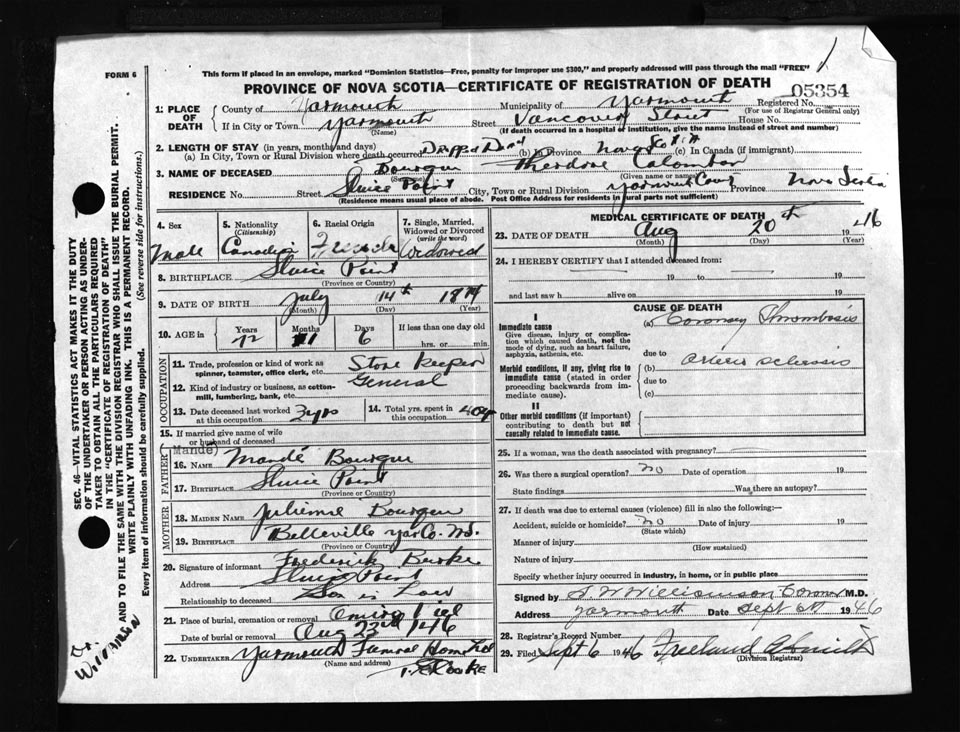 FORM 6
This form if placed in an envelope, marked "Dominion Statistics—Free, penalty for improper use $300," and properly addressed will pass through the mail "FREE"
PROVINCE OF NOVA SCOTIA—CERTIFICATE OF REGISTRATION OF DEATH
05354
1. PLACE OF DEATH County of Yarmouth Municipality of Yarmouth Registered No.
(For use of Registrar General only)
If in City or Town Yarmouth Street Vancover Street House No.
(Name) (If death occurred in a hospital or institution, give the name instead of street and number)
2. LENGTH OF STAY (in years, months and days)
(a) In City, Town or Rural Division where death occurred Dropped Dead (b) In Province Nova Scotia (c) In Canada (if immigrant)
3. NAME OF DECEASED Bourque Theodore
(Surname) (Given name or names)
RESIDENCE No. Street Sluice Point City, Town or Rural Division Yarmouth County Province Nova Scotia
(Residence means usual place of abode. Post Office Address for residents in rural parts not sufficient)
4. Sex Male
5. Nationality (Citizenship) Canadian
6. Racial Origin French
7. Single, Married, Widowed or Divorced (write the word) Widowed
8. BIRTHPLACE Sluice Point
(Province or Country)
9. DATE OF BIRTH July 14th 1874
(Month) (Day) (Year)
10. AGE in Years 72 Months 1 Days 6 If less than one day old hrs. or min.
OCCUPATION
11. Trade, profession or kind of work as spinner, teamster, office clerk, etc. Store keeper
12. Kind of industry or business, as cotton-mill, lumbering, bank, etc. General
13. Date deceased last worked at this occupation 3 yrs
14. Total yrs. spent in this occupation 40 yr
15. If married give name of wife or husband of deceased
FATHER
(Mande)
16. NAME Mandé Bourque
17. BIRTHPLACE Sluice Point
(Province or Country)
MOTHER
18. MAIDEN NAME Julienne Bourque
19. BIRTHPLACE Belleville Yar Co. N.S.
(Province or Country)
20. Signature of informant Frederick Burke
Address Sluice Point
Relationship to deceased Son in Law
21. Place of burial, cremation or removal
Date of burial or removal Aug 23rd 1946
22. UNDERTAKER Yarmouth Funeral Home Ltd
(Name and address)
MEDICAL CERTIFICATE OF DEATH
23. DATE OF DEATH Aug 20th 1946
(Month) (Day) (Year)
24. I HEREBY CERTIFY that I attended deceased from
19 to 19
and last saw h alive on 19
CAUSE OF DEATH
I
Immediate cause
Give disease, injury or complication which caused death, not the mode of dying, such as heart failure, asphyxia, asthenia, etc.
(a) Coronary Thrombosis
due to
Morbid conditions, if any, giving rise to immediate cause (stated in order proceeding backwards from immediate cause).
(b) Arterio sclerosis
due to
(c)
II
Other morbid conditions (if important) contributing to death but not causally related to immediate cause.
25. If a woman, was the death associated with pregnancy?
26. Was there a surgical operation? No Date of operation 19
State findings Was there an autopsy?
27. If death was due to external causes (violence) fill in also the following:—
Accident, suicide or homicide? No Date of injury 19
(State which)
Manner of injury
(How sustained)
Nature of injury
Specify whether injury occurred in industry, in home, or in public place
Signed by Williamson Coroner M.D.
Address Yarmouth Date Sept 6th 1946
28. Registrar's Record Number
29. Filed Sept 6 1946 Freeland
(Division Registrar)
SEC. 46—VITAL STATISTICS ACT MAKES IT THE DUTY
OF THE UNDERTAKER OR PERSON ACTING AS UNDER-
TAKER TO OBTAIN ALL THE PARTICULARS REQUIRED
IN THE "CERTIFICATE OF REGISTRATION OF DEATH"
AND TO FILE THE SAME WITH THE DIVISION REGISTRAR WHO SHALL ISSUE THE BURIAL PERMIT.
WRITE PLAINLY WITH UNFADING INK. THIS IS A PERMANENT RECORD.
Every item of information should be carefully supplied. (See reverse side for instructions.)
Dr Williamson